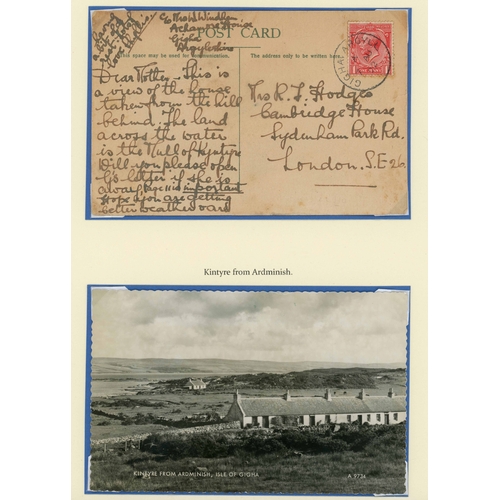 c/o Mrs W Windham
Achamore House
Gigha
Argyleshire
lovely
POST CARD
This space may be used for communication.
The address only to be written here.
GIGHA ARGYLL
Dear Mother – This is
a view of the house
taken from the hill
behind. The land
across the water
is the Mull of Kintyre
Will you please open
G's letter if she is
away, important
Hope you are getting
better weather and
Mrs R. F. Hodges
Cambridge House
Sydenham Park Rd.
London. S.E 26
Kintyre from Ardminish.
KINTYRE FROM ARDMINISH, ISLE OF GIGHA
A 9734